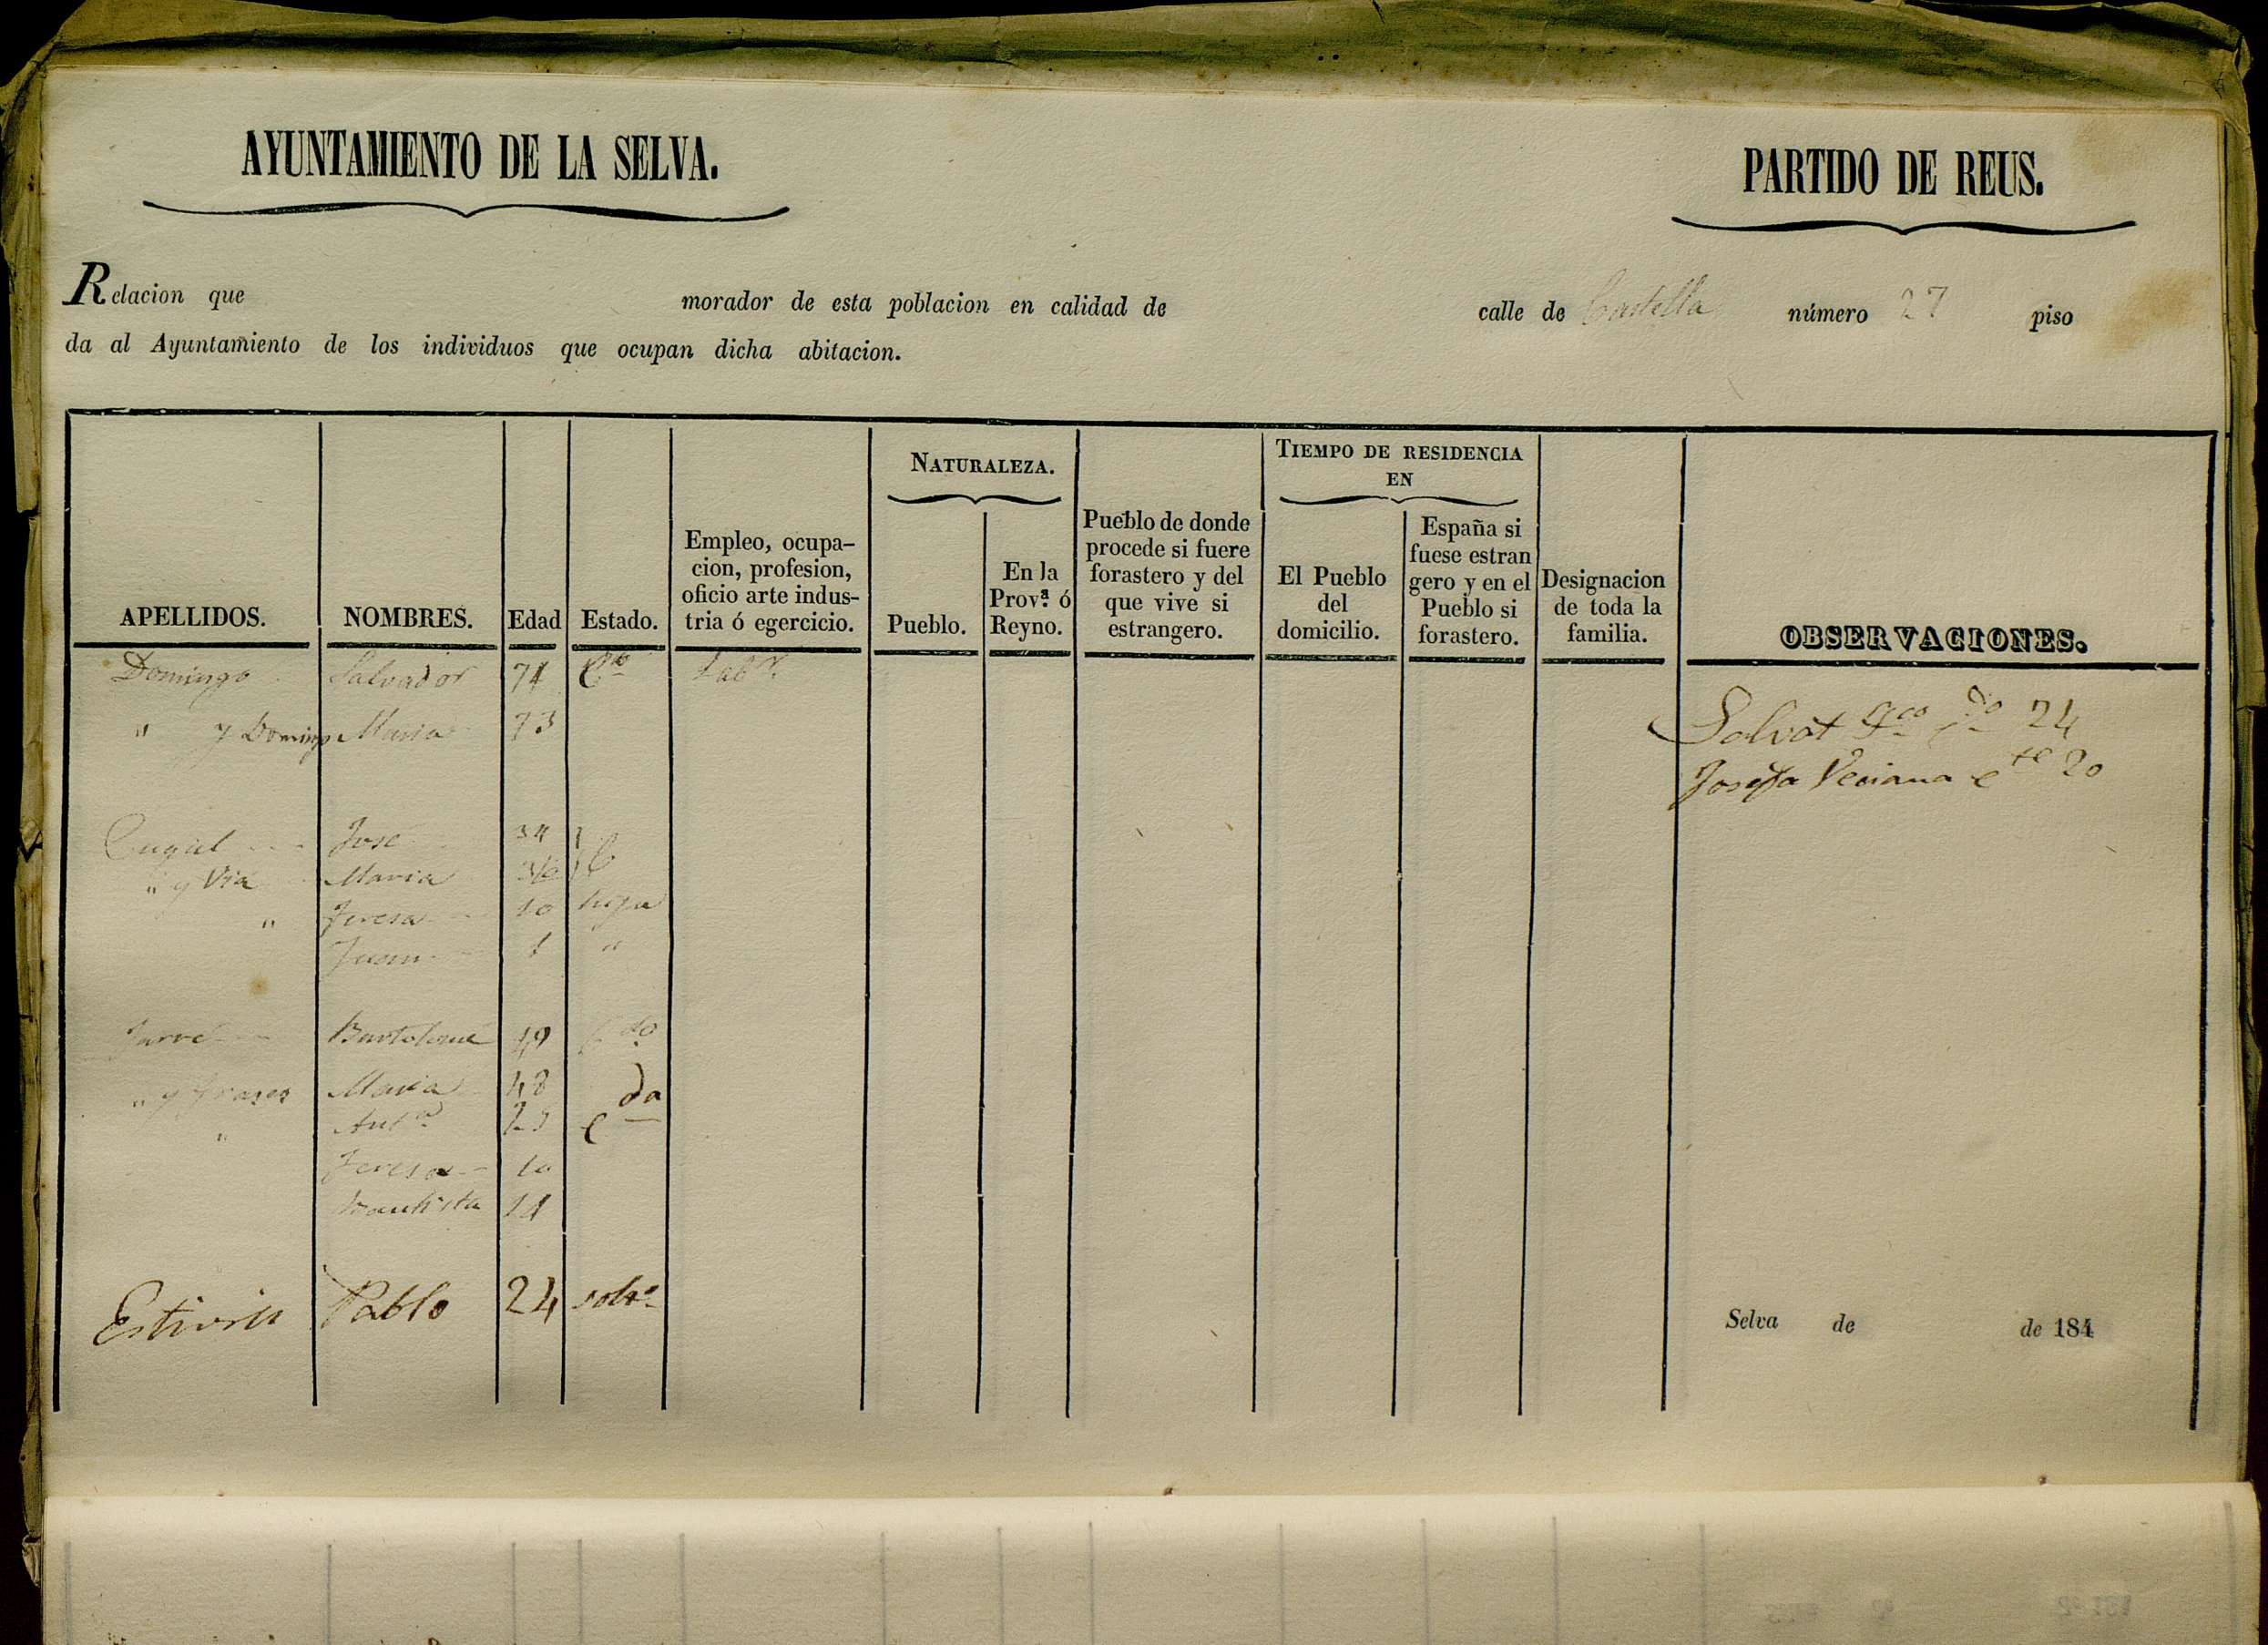 AYUNTAMIENTO DE LA SELVA.
PARTIDO DE REUS.
Relacion que morador de esta poblacion en calidad de calle de Castella número 27 piso
da al Ayuntamiento de los individuos que ocupan dicha abitacion.
APELLIDOS.
NOMBRES.
Edad
Estado.
Empleo, ocupa-
cion, profesion,
oficio arte indus-
tria ó egercicio.
NATURALEZA.
Pueblo.
En la
Prov.ª ó
Reyno.
Pueblo de donde
procede si fuere
forastero y del
que vive si
estrangero.
TIEMPO DE RESIDENCIA
EN
El Pueblo
del
domicilio.
España si
fuese estran
gero y en el
Pueblo si
forastero.
Designacion
de toda la
familia.
OBSERVACIONES.
Domingo Salvador 74 Cdo Labr.
" y Domingo Maria 73
Salvat Fco 24
Josefa Veciana 20
José 34
" y Vía Maria 36 C
" Teresa 10 hija
Juan 1 "
Bartolomé 49 do
" y Maria 48
" Antª 25 Cda
Teresa 10
Bautista 14
Pablo 24 solto
Selva de de 184